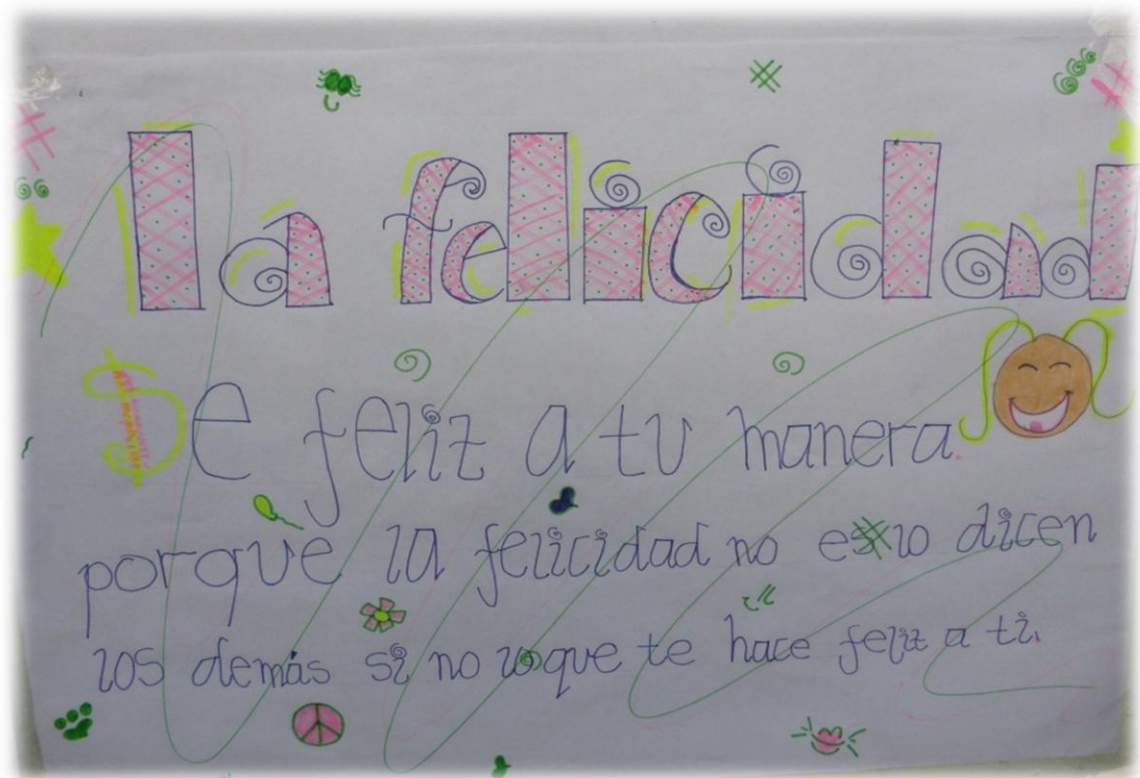 la felicidad
Se feliz a tu manera.
porque la felicidad no es lo dicen
los demás si no lo que te hace feliz a ti.